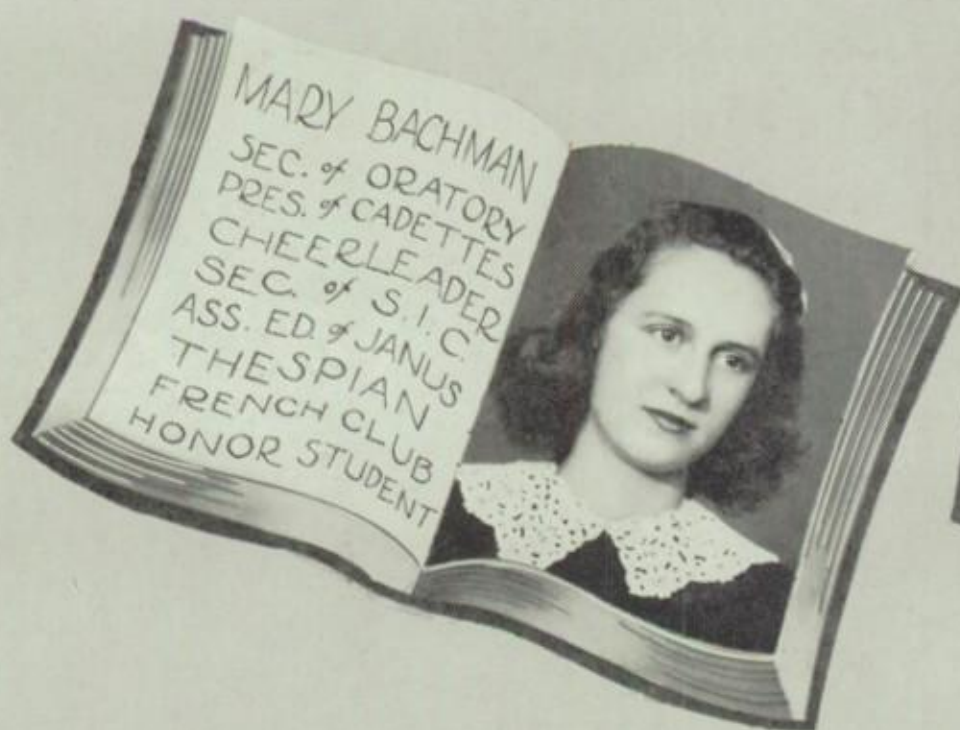 MARY BACHMAN
SEC. of ORATORY
PRES. of CADETTES
CHEERLEADER
SEC. of S. I. C.
ASS. ED. of JANUS
THESPIAN
FRENCH CLUB
HONOR STUDENT